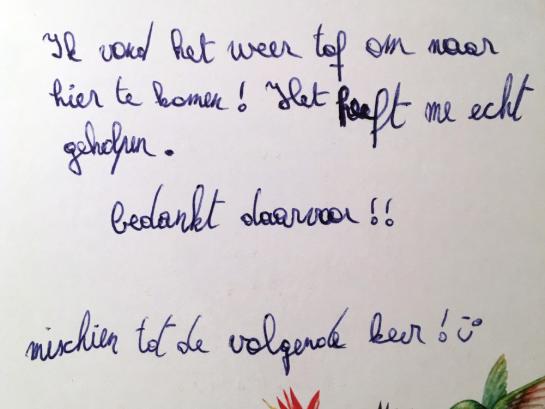 Ik vond het weer tof om naar
hier te komen! Het heeft me echt
geholpen.
bedankt daarvoor!!
mischien tot de volgende keer! :)